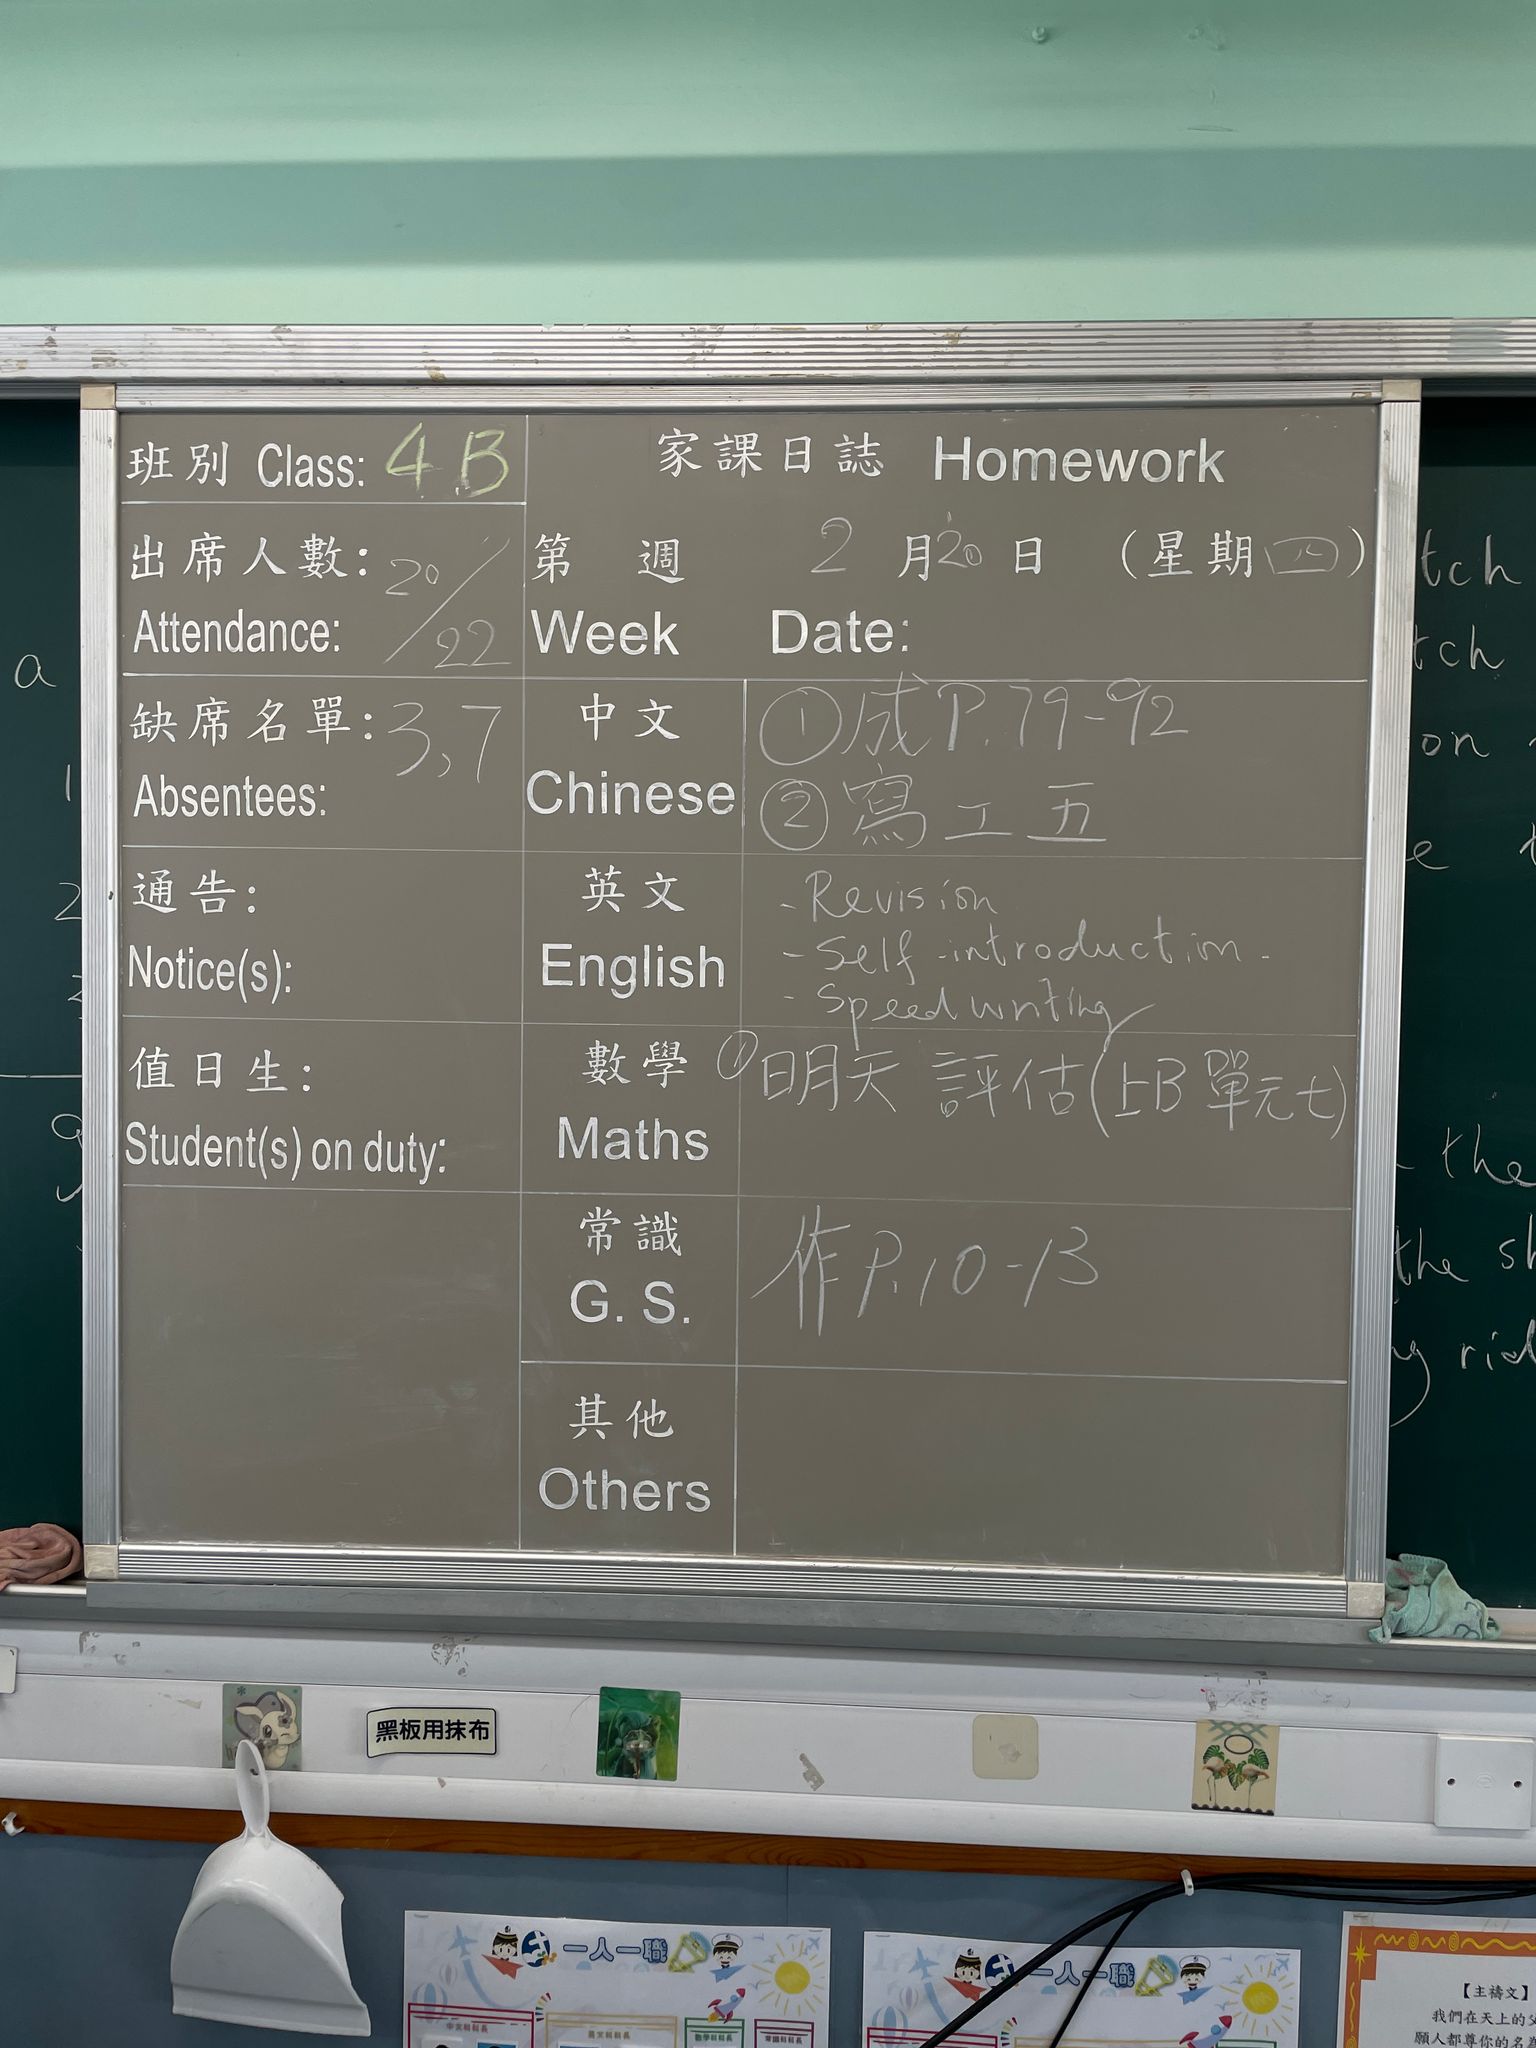 班別 Class: 4B
家課日誌 Homework
出席人數: 20/22
Attendance:
第 週 2 月 20 日 (星期四)
Week Date:
缺席名單: 3,7
Absentees:
中文
Chinese
① 成 P.79-92
② 寫工五
通告:
Notice(s):
英文
English
- Revision
- Self-introduction.
- Speed writing
值日生:
Student(s) on duty:
數學
Maths
① 明天評估(上B單元七)
常識
G. S.
作 P.10-13
其他
Others
a
1
2
tch
tch
on
e
the
the sh
黑板用抹布
一人一職
一人一職
中文科科長
英文科科長
數學科科長
常識科科長
【主禱文】
我們在天上的父
願人都尊你的名為